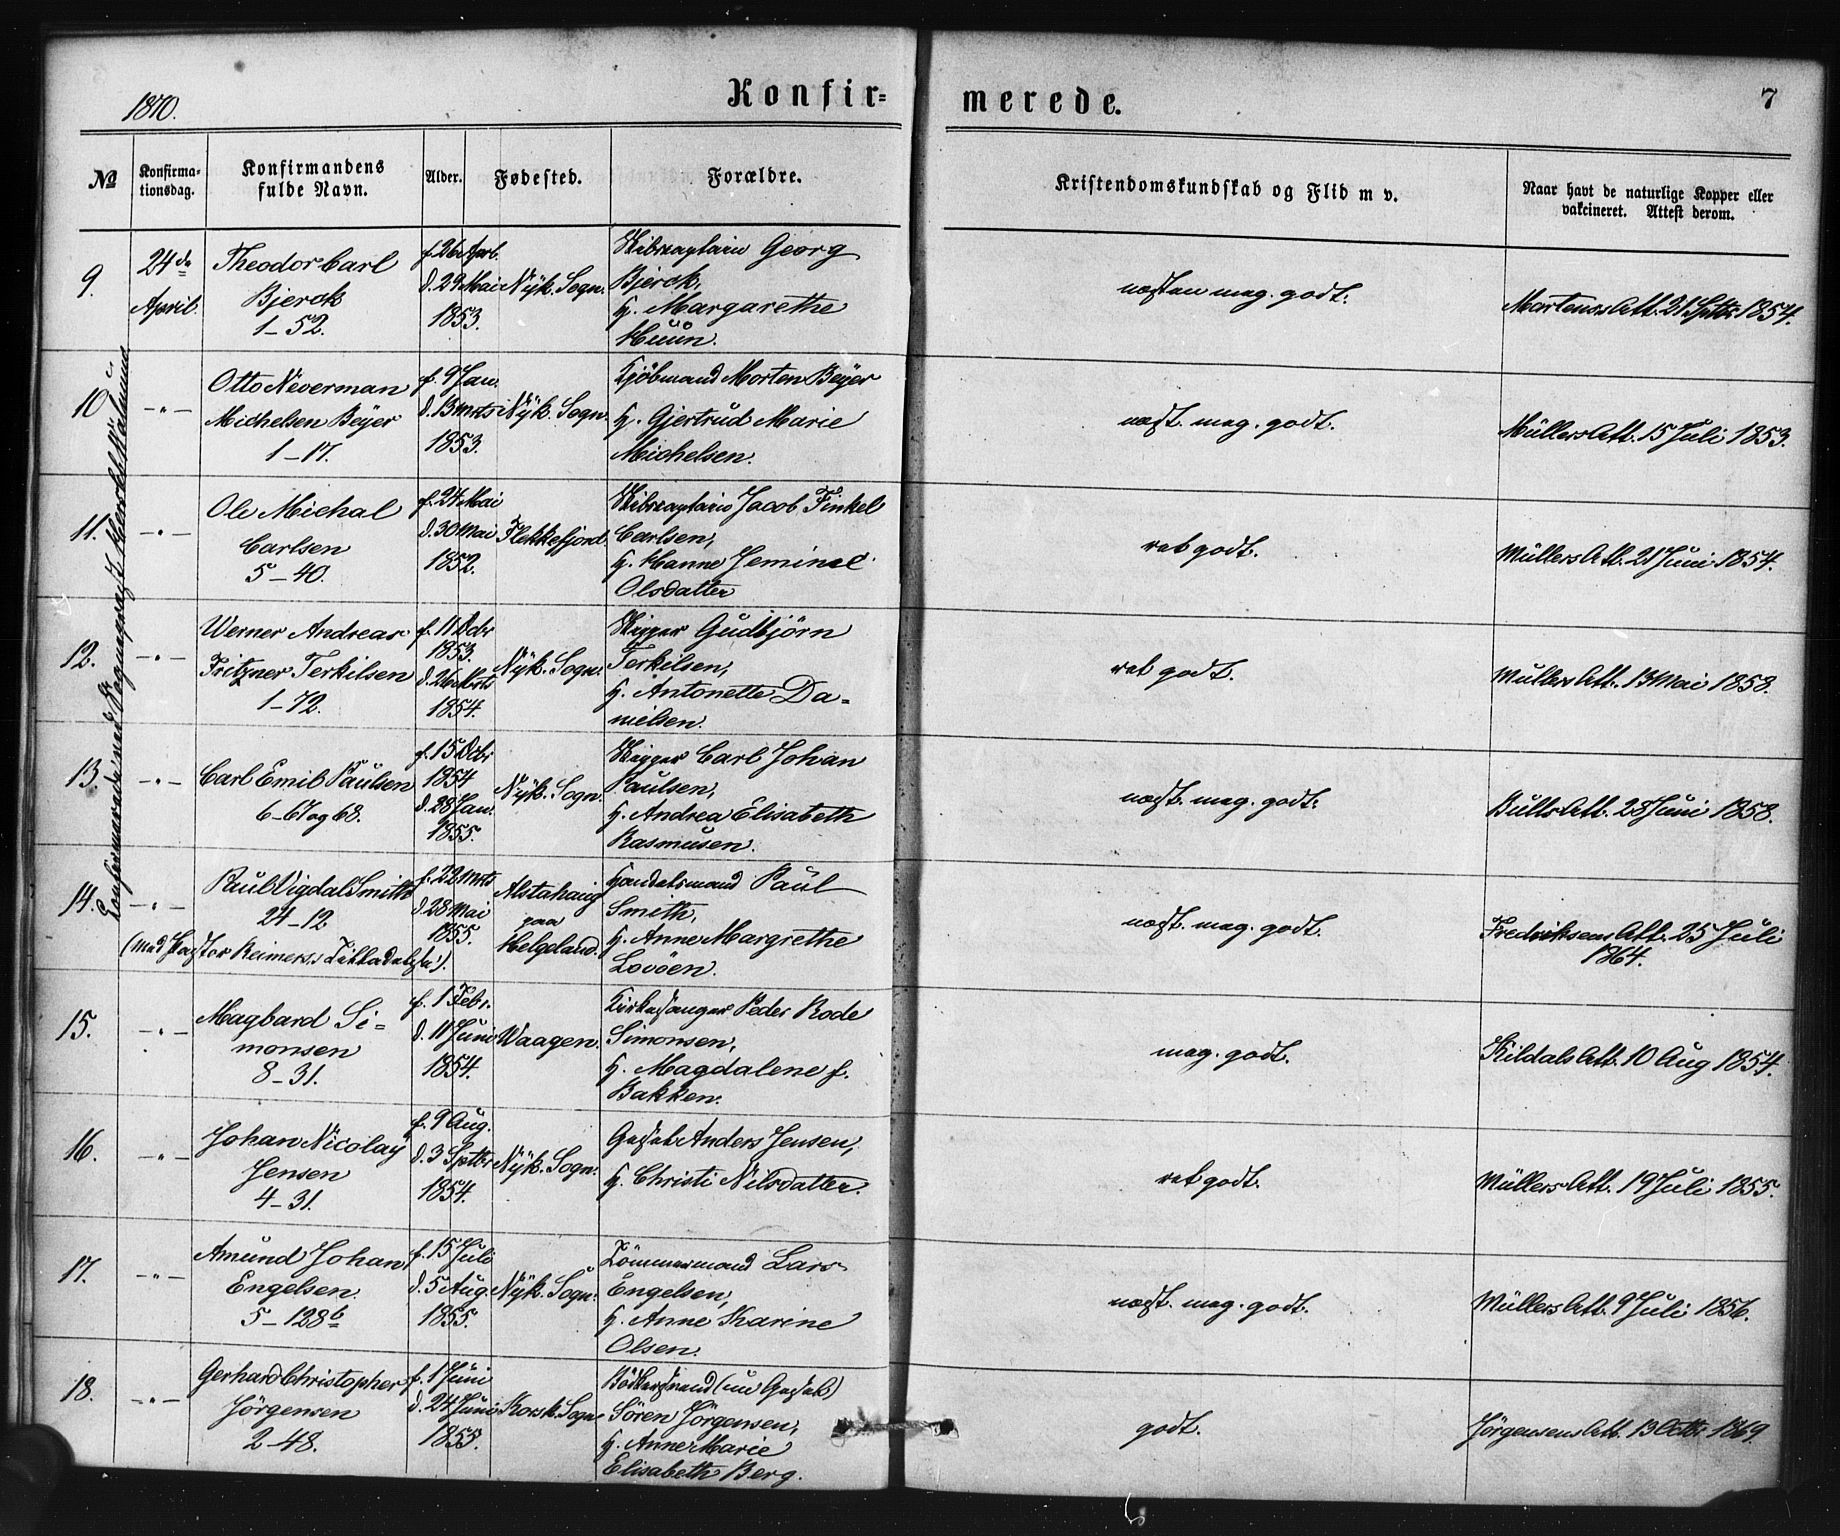 1870.
Konfir=
merede.
7
No
Konfirma-
tionsdag.
Konfirmandens
fulde Navn.
Alder.
Fødested.
Forældre.
Kristendomskundskab og Flid m v.
Naar havt de naturlige Kopper eller
vakcineret. Attest derom.
9.
24de
April.
Theodor Carl
Bjerck
1-52.
f. 26 Apr.
d. 29 Mai
1853.
Nÿk. Sogn.
Skibscaptain Georg
Bjerck,
H. Margarethe
Huun.
næsten meg. godt.
Martens Att. 21 Sptbr 1854.
10
-"-
Otto Neverman
Michelsen Beÿer
1-17.
f. 9 Jan.
d. 13 Mrts
1853.
Nÿk. Sogn.
Kjöbmand Morten Beÿer
H. Gjertrud Marie
Michelsen.
næst. meg. godt.
Müllers Att. 15 Juli 1853.
11.
-"-
Ole Michal
Carlsen
5-40.
f. 24 Mai
d. 30 Mai
1852.
Flekkefjord.
Skibscaptain Jacob Finkel
Carlsen,
H. Hanne Jemine
Olsdatter
ret godt.
Müllers Att. 21 Juni 1854.
12.
-"-
Werner Andreas
Fritzner Terkilsen
1-72.
f. 11 Dcbr
1853.
d. 26 Mrts
1854.
Nÿk. Sogn.
Skipper Gudbjörn
Terkilsen,
H. Antonette Da=
nielsen.
ret godt.
Müllers Att. 13 Mai 1858.
13.
-"-
Carl Emil Paulsen
6-67 og 68.
f. 15 Dcbr
1854
d. 28 Jan.
1855.
Nÿk. Sogn.
Skipper Carl Johan
Paulsen,
H. Andrea Elisabeth
Rasmusen.
næst. meg. godt.
Bulls Att. 28 Juni 1858.
14.
-"-
Paul Vigdal Smith
24-12
f. 22 Mrts
d. 28 Mai
1855.
Alstahaug
paa
Helgeland.
Handelsmand Paul
Smith,
H. Anne Margrethe
Lovöen.
næst. meg. godt.
Fredriksens Att. 25 Juli
1864.
(med Pastor Reimers's Tilladelse).
15.
-"-
Magbard Si=
monsen
8-31.
f. 1 Febr.
d. 11 Juni
1854.
Waagen.
Kirkesanger Peder Rode
Simonsen,
H. Magdalene f.
Bakken.
meg. godt.
Kildals Att. 10 Aug 1854.
16.
-"-
Johan Nicolaÿ
Jensen
4-31.
f. 9 Aug.
d. 3 Sptbr
1854.
Nÿk. Sogn.
Gesel Anders Jensen,
H. Christi Nilsdatter.
ret godt.
Müllers Att. 19 Juli 1855.
17.
-"-
Amund Johan
Engelsen
5-128b
f. 15 Juli
d. 5 Aug.
1855.
Nÿk. Sogn.
Tömmermand Lars
Engelsen,
H. Anne Karine
Olsen.
næst. meg. godt.
Müllers Att. 9 Juli 1856.
18.
-"-
Gerhard Christopher
Jörgensen
2-48.
f. 1 Juni
d. 24 Juni
1855.
Korsk. Sogn
Bödkersvend (nu Gesel)
Sören Jörgensen,
H. Anne Marie
Elisabeth Berg.
godt.
Jörgensens Att. 13 Octbr 1869.